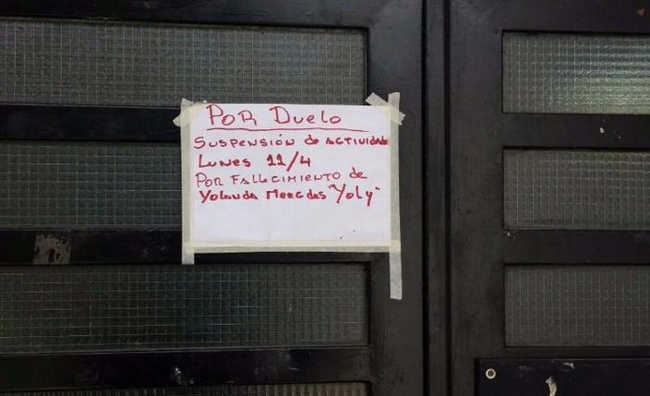 POR DUELO
SUSPENSIÓN de ACTIVIDADES
LUNES 11/4
POR FALLECIMIENTO de
Yolanda "Yoly"